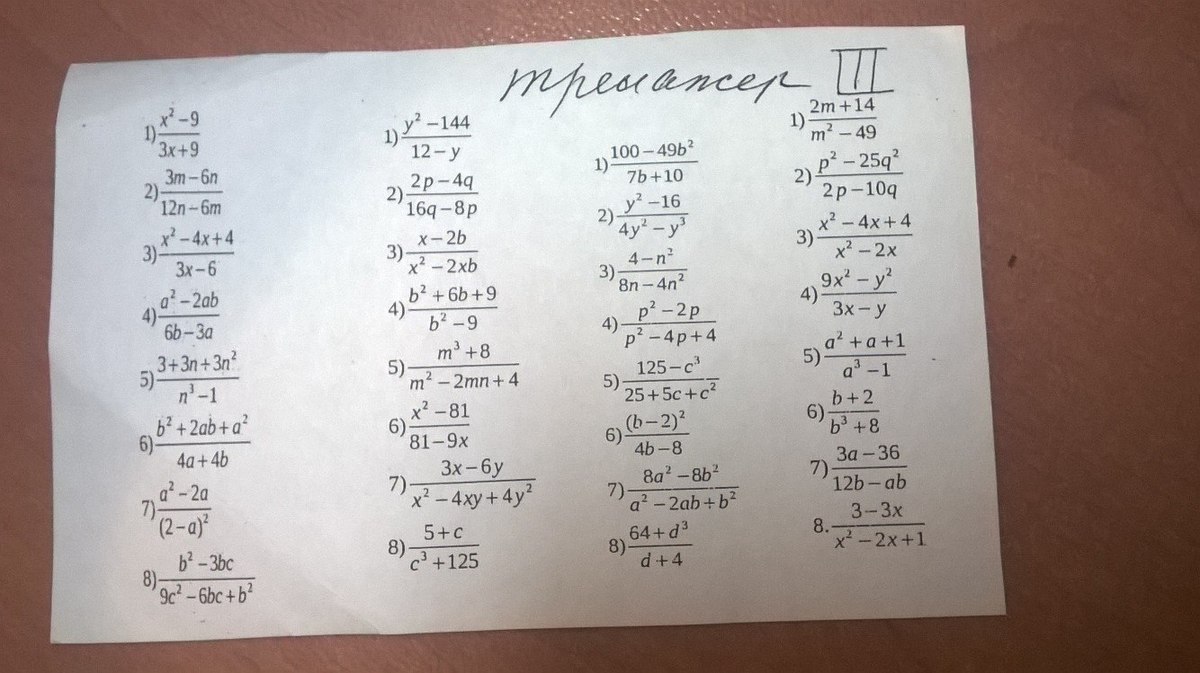 тренажер III
1) x² – 9 / 3x + 9
2) 3m – 6n / 12n – 6m
3) x² – 4x + 4 / 3x – 6
4) a² – 2ab / 6b – 3a
5) 3 + 3n + 3n² / n³ – 1
6) b² + 2ab + a² / 4a + 4b
7) a² – 2a / (2 – a)²
8) b² – 3bc / 9c² – 6bc + b²
1) y² – 144 / 12 – y
2) 2p – 4q / 16q – 8p
3) x – 2b / x² – 2xb
4) b² + 6b + 9 / b² – 9
5) m³ + 8 / m² – 2mn + 4
6) x² – 81 / 81 – 9x
7) 3x – 6y / x² – 4xy + 4y²
8) 5 + c / c³ + 125
1) 100 – 49b² / 7b + 10
2) y² – 16 / 4y² – y³
3) 4 – n² / 8n – 4n²
4) p² – 2p / p² – 4p + 4
5) 125 – c³ / 25 + 5c + c²
6) (b – 2)² / 4b – 8
7) 8a² – 8b² / a² – 2ab + b²
8) 64 + d³ / d + 4
1) 2m + 14 / m² – 49
2) p² – 25q² / 2p – 10q
3) x² – 4x + 4 / x² – 2x
4) 9x² – y² / 3x – y
5) a² + a + 1 / a³ – 1
6) b + 2 / b³ + 8
7) 3a – 36 / 12b – ab
8. 3 – 3x / x² – 2x + 1